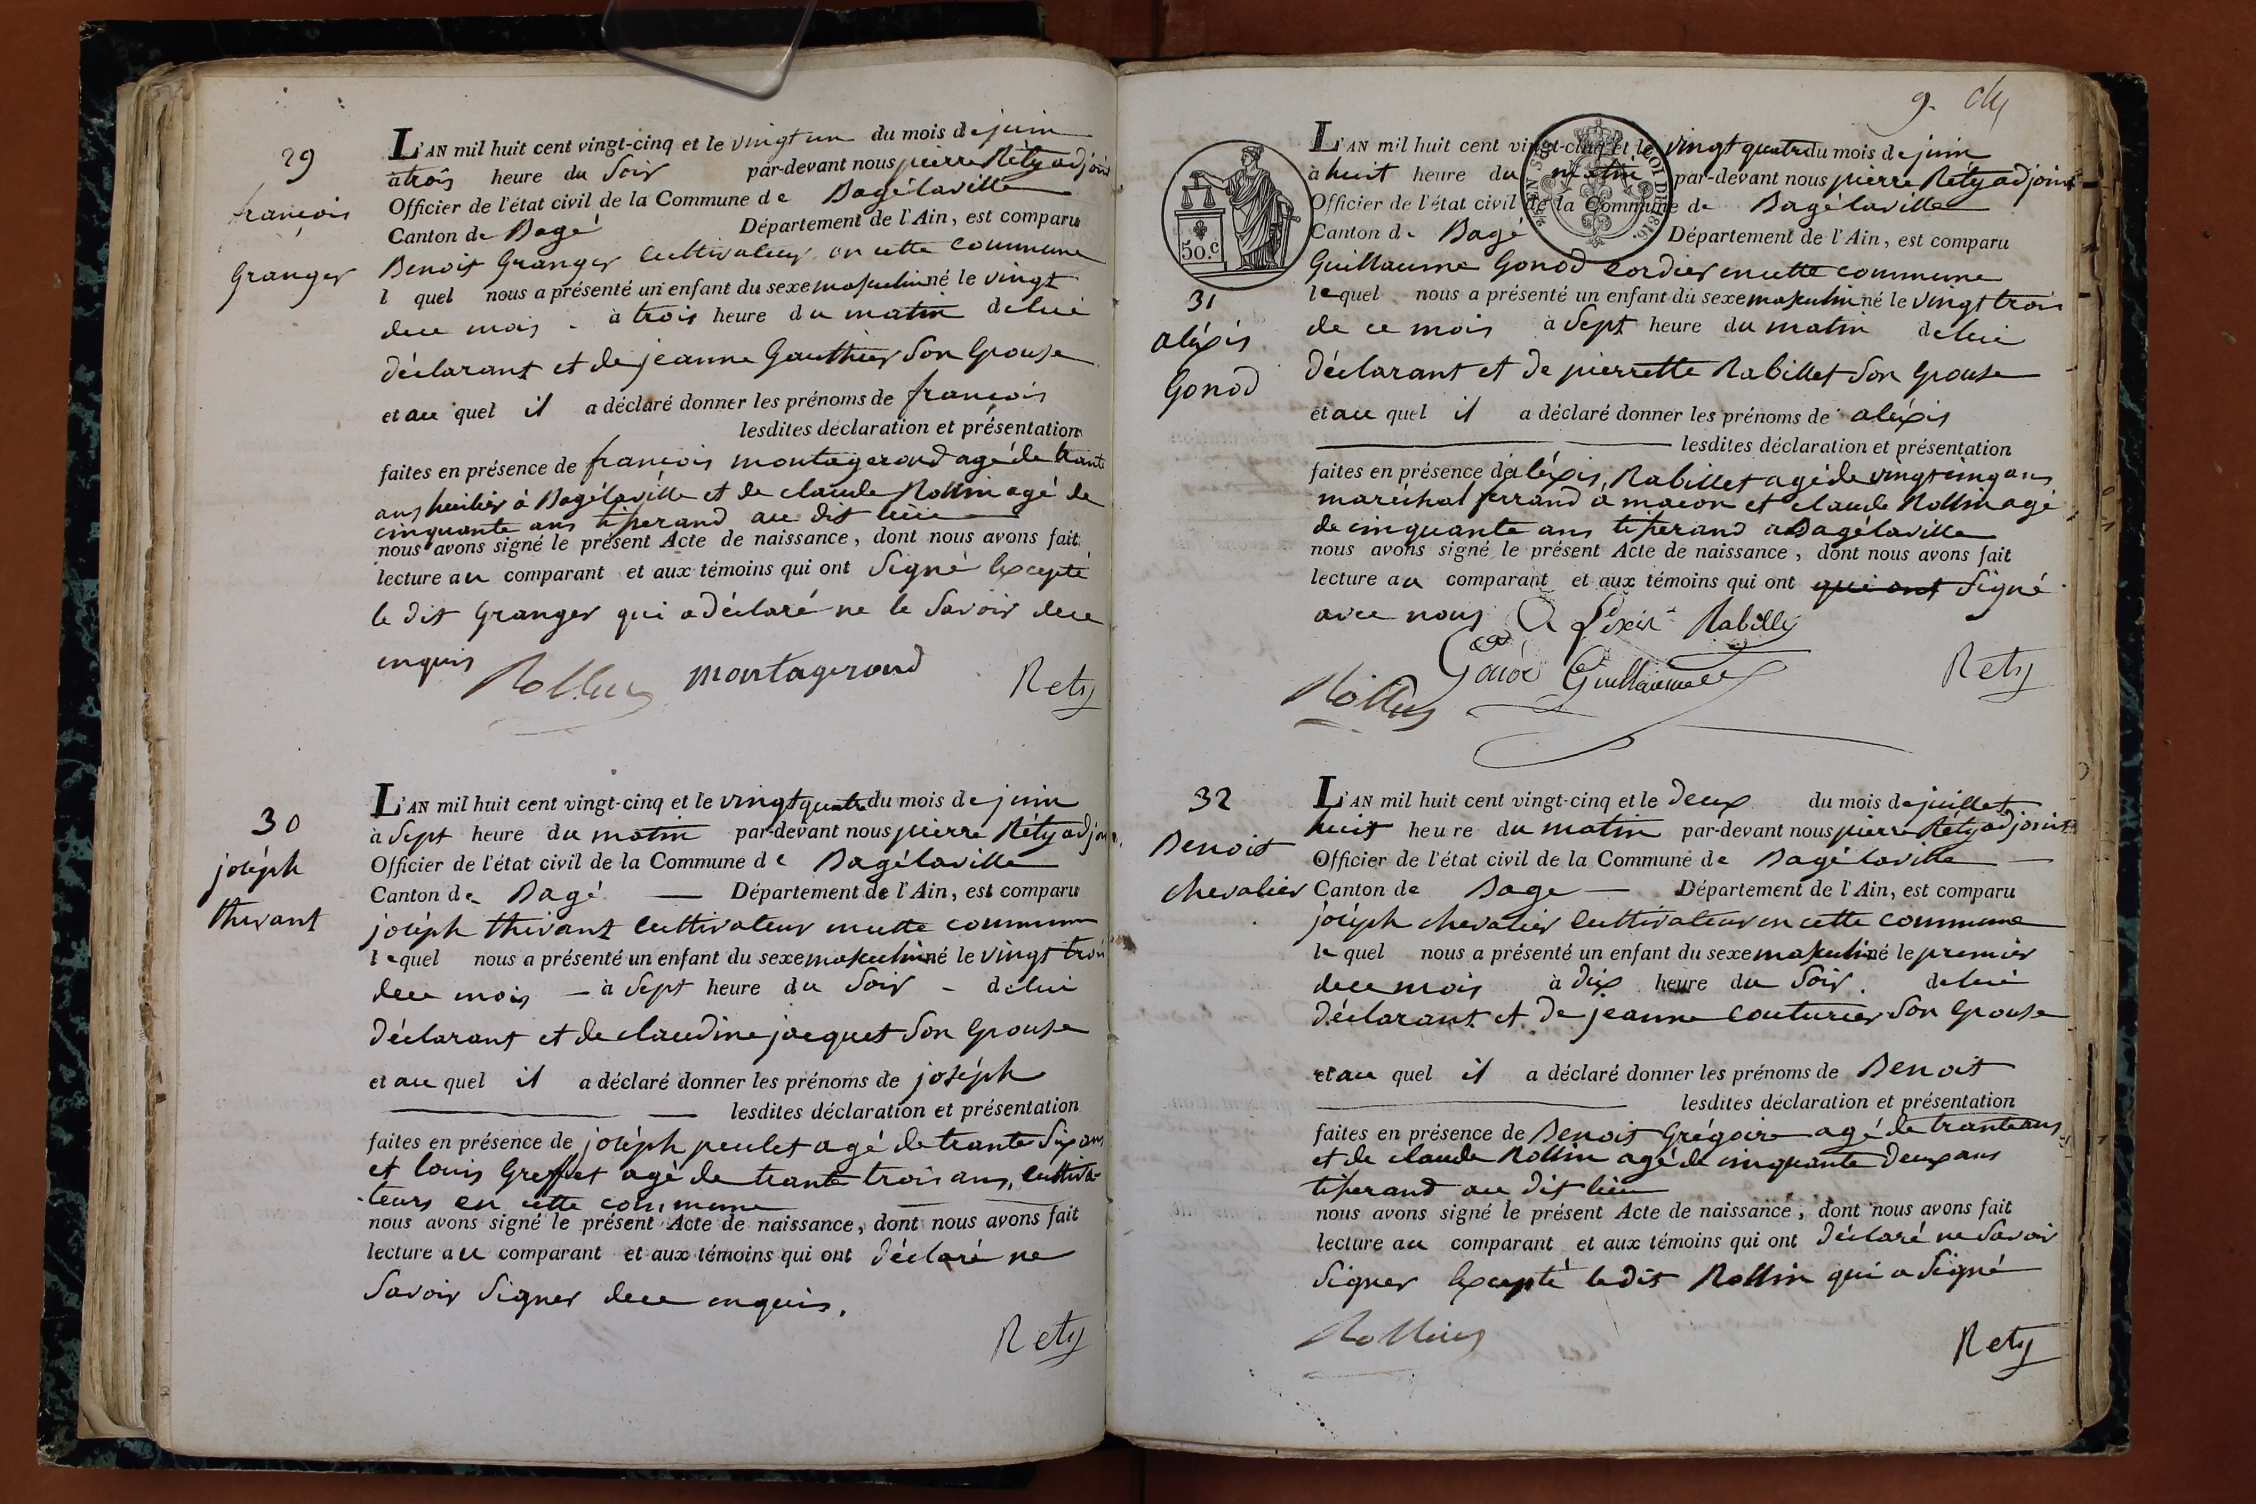 29
françois
Granger
L'AN mil huit cent vingt-cinq et le vingt un du mois de juin
à trois heure du Soir par-devant nous pierre Réty adjoint
Officier de l'état civil de la Commune de Bagélaville
Canton de Bagé Département de l'Ain, est comparu
Benoit Granger Cultivateur en cette commune
l quel nous a présenté un enfant du sexe masculin né le vingt
de ce mois à trois heure du matin de lui
déclarant et de jeanne Gauthier Son Epouse
et au quel il a déclaré donner les prénoms de françois
lesdites déclaration et présentation
faites en présence de françois montagerond agé de trante
ans huilier à Bagélaville et de claude Rollin agé de
cinquante ans tisserand au dit lieu
nous avons signé le présent Acte de naissance, dont nous avons fait
lecture au comparant et aux témoins qui ont Signé Excepté
le dit Granger qui a déclaré ne le Savoir de ce
enquis
Rollin montagerond Rety
30
joséph
thivant
L'AN mil huit cent vingt-cinq et le vingt quatre du mois de juin
à Sept heure du matin par-devant nous pierre Réty adjoint
Officier de l'état civil de la Commune de Bagélaville
Canton de Bagé Département de l'Ain, est comparu
joséph thivant Cultivateur en cette commune
lequel nous a présenté un enfant du sexe masculin né le vingt trois
de ce mois à Sept heure du Soir de lui
déclarant et de claudine jacquet Son Epouse
et au quel il a déclaré donner les prénoms de joséph
lesdites déclaration et présentation
faites en présence de joséph peulet agé de trante Six ans
et louis Greffet agé de trante trois ans, cultiva-
teurs en cette commune
nous avons signé le présent Acte de naissance, dont nous avons fait
lecture au comparant et aux témoins qui ont déclaré ne
Savoir Signer de ce enquis.
Rety
9.
50.c
LOI DE 1816.
31
aléxis
Gonod
L'AN mil huit cent vingt-cinq et le vingt quatre du mois de juin
à huit heure du matin par-devant nous pierre Réty adjoint
Officier de l'état civil de la Commune de Bagélaville
Canton de Bagé Département de l'Ain, est comparu
Guillaume Gonod Cordier en cette commune
lequel nous a présenté un enfant du sexe masculin né le vingt trois
de ce mois à Sept heure du matin de lui
déclarant et de pierrette Rabillet Son Epouse
et au quel il a déclaré donner les prénoms de aléxis
lesdites déclaration et présentation
faites en présence de aléxis Rabillet agé de vingt cinq ans
maréchal ferrand à macon et claude Rollin agé
de cinquante ans tisserand a Bagélaville
nous avons signé le présent Acte de naissance, dont nous avons fait
lecture au comparant et aux témoins qui ont qui ont Signé
avec nous
Rety
32
Benoit
chevalier
L'AN mil huit cent vingt-cinq et le deux du mois de juillet
huit heure du matin par-devant nous pierre Réty adjoint
Officier de l'état civil de la Commune de Bagélaville
Canton de Bage Département de l'Ain, est comparu
joséph chevalier Cultivateur en cette commune
le quel nous a présenté un enfant du sexe masculin né le premier
de ce mois à dix heure du Soir. de lui
déclarant et de jeanne Couturier Son Epouse
et au quel il a déclaré donner les prénoms de Benoit
lesdites déclaration et présentation
faites en présence de Benoit Grégoire agé de trante ans
et de claude Rollin agé de cinquante deux ans
tisserand au dit lieu
nous avons signé le présent Acte de naissance, dont nous avons fait
lecture au comparant et aux témoins qui ont déclaré ne Savoir
Signer Excepté le dit Rollin qui a Signé
Rollin
Rety